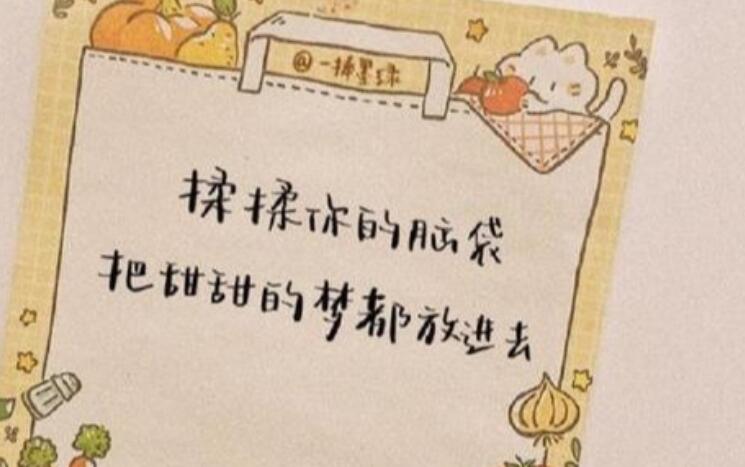 @一捧墨绿
揉揉你的脑袋
把甜甜的梦都放进去